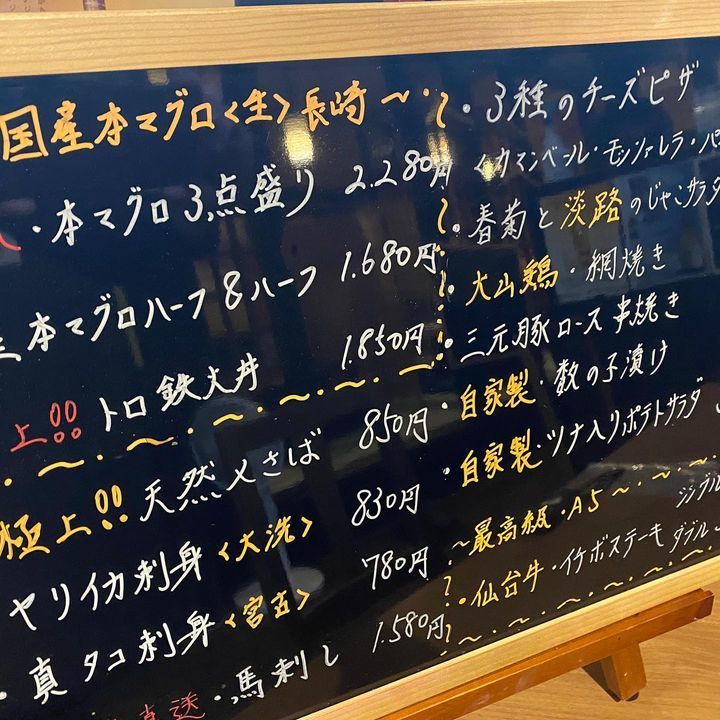 国産本マグロ<生>長崎~
・本マグロ3点盛り 2.280円
本マグロハーフ&ハーフ 1.680円
上!! トロ鉄火丼 1.850円
極上!! 天然〆さば 850円
ヤリイカ刺身<大洗> 830円
・真タコ刺身<宮古> 780円
直送・馬刺し 1.580円
・3種のチーズピザ
<カマンベール・モッツァレラ・パ
・春菊と淡路のじゃこサラダ
・大山鶏・網焼き
・三元豚ロース串焼き
・自家製・数の子漬け
・自家製・ツナ入りポテトサラダ
~最高級・A5~
シングル
・仙台牛・イチボステーキ ダブル